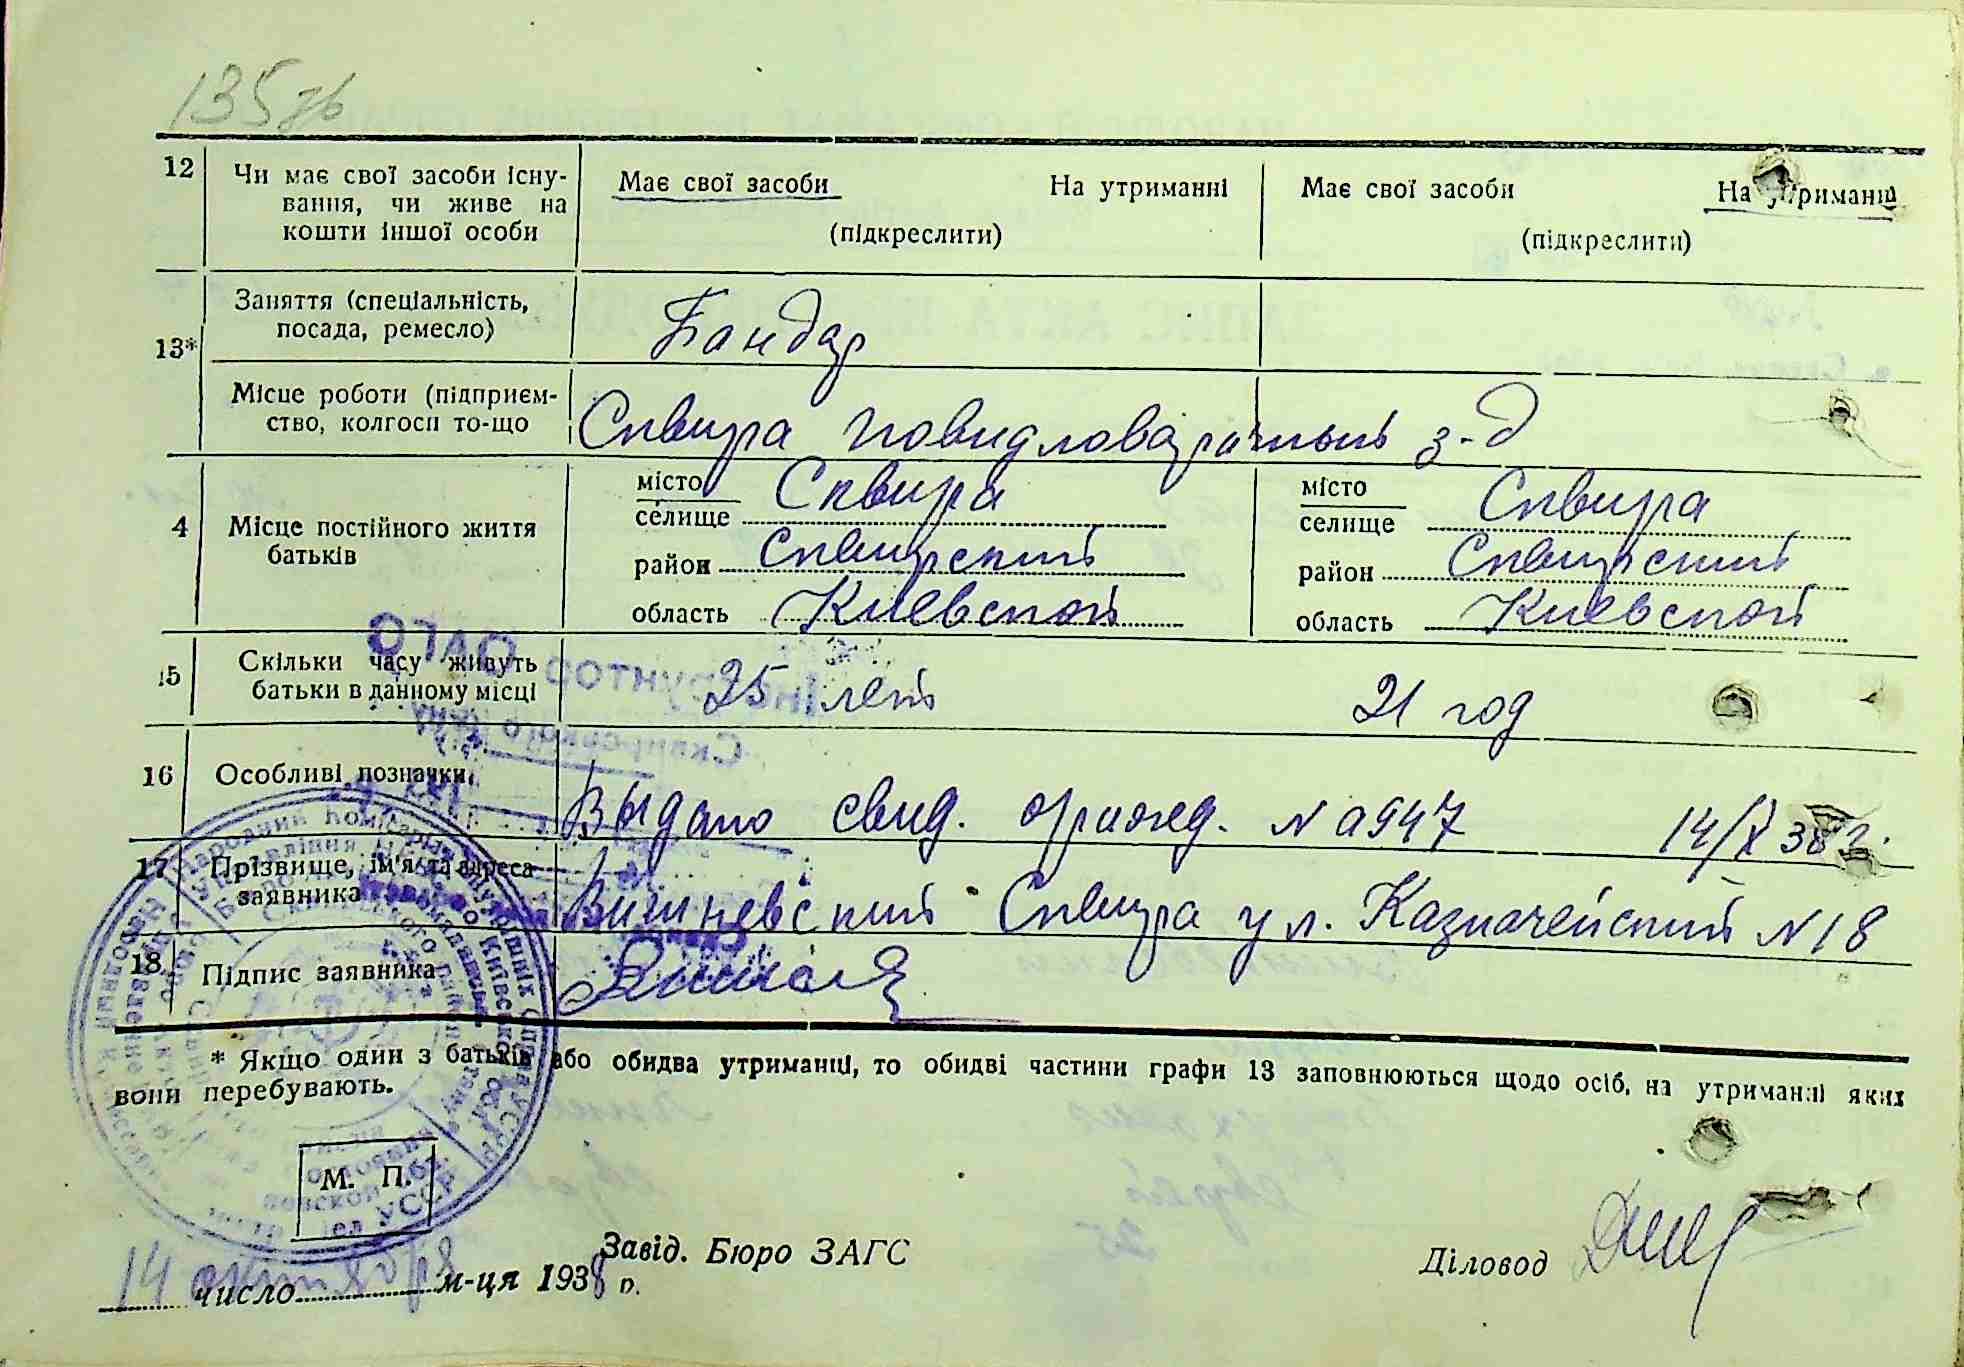 135 зв
12 Чи має свої засоби існу- Має свої засоби На утриманні Має свої засоби На утриманні
вання, чи живе на
кошти іншої особи (підкреслити) (підкреслити)
13* Заняття (спеціальність,
посада, ремесло) Бандар
Місце роботи (підприєм-
ство, колгосп то-що Сквира повидловарочный з-д
4 Місце постійного життя
батьків
місто Сквира місто Сквира
селище селище
район Сквирский район Сквирский
область Киевской область Киевской
15 Скільки часу живуть
батьки в данному місці 25 лет 21 год
16 Особливі позначки Выдано свид. о рожд. № а947 14/X 38 г.
17 Прізвище, ім'я та адреса
заявника Вишневский Сквира ул. Казначейский №18
18 Підпис заявника
* Якщо один з батьків або обидва утриманці, то обидві частини графи 13 заповнюються щодо осіб, на утриманні яких
вони перебувають.
М. П.
Завід. Бюро ЗАГС Діловод
14 число октября м-ця 1938 р.